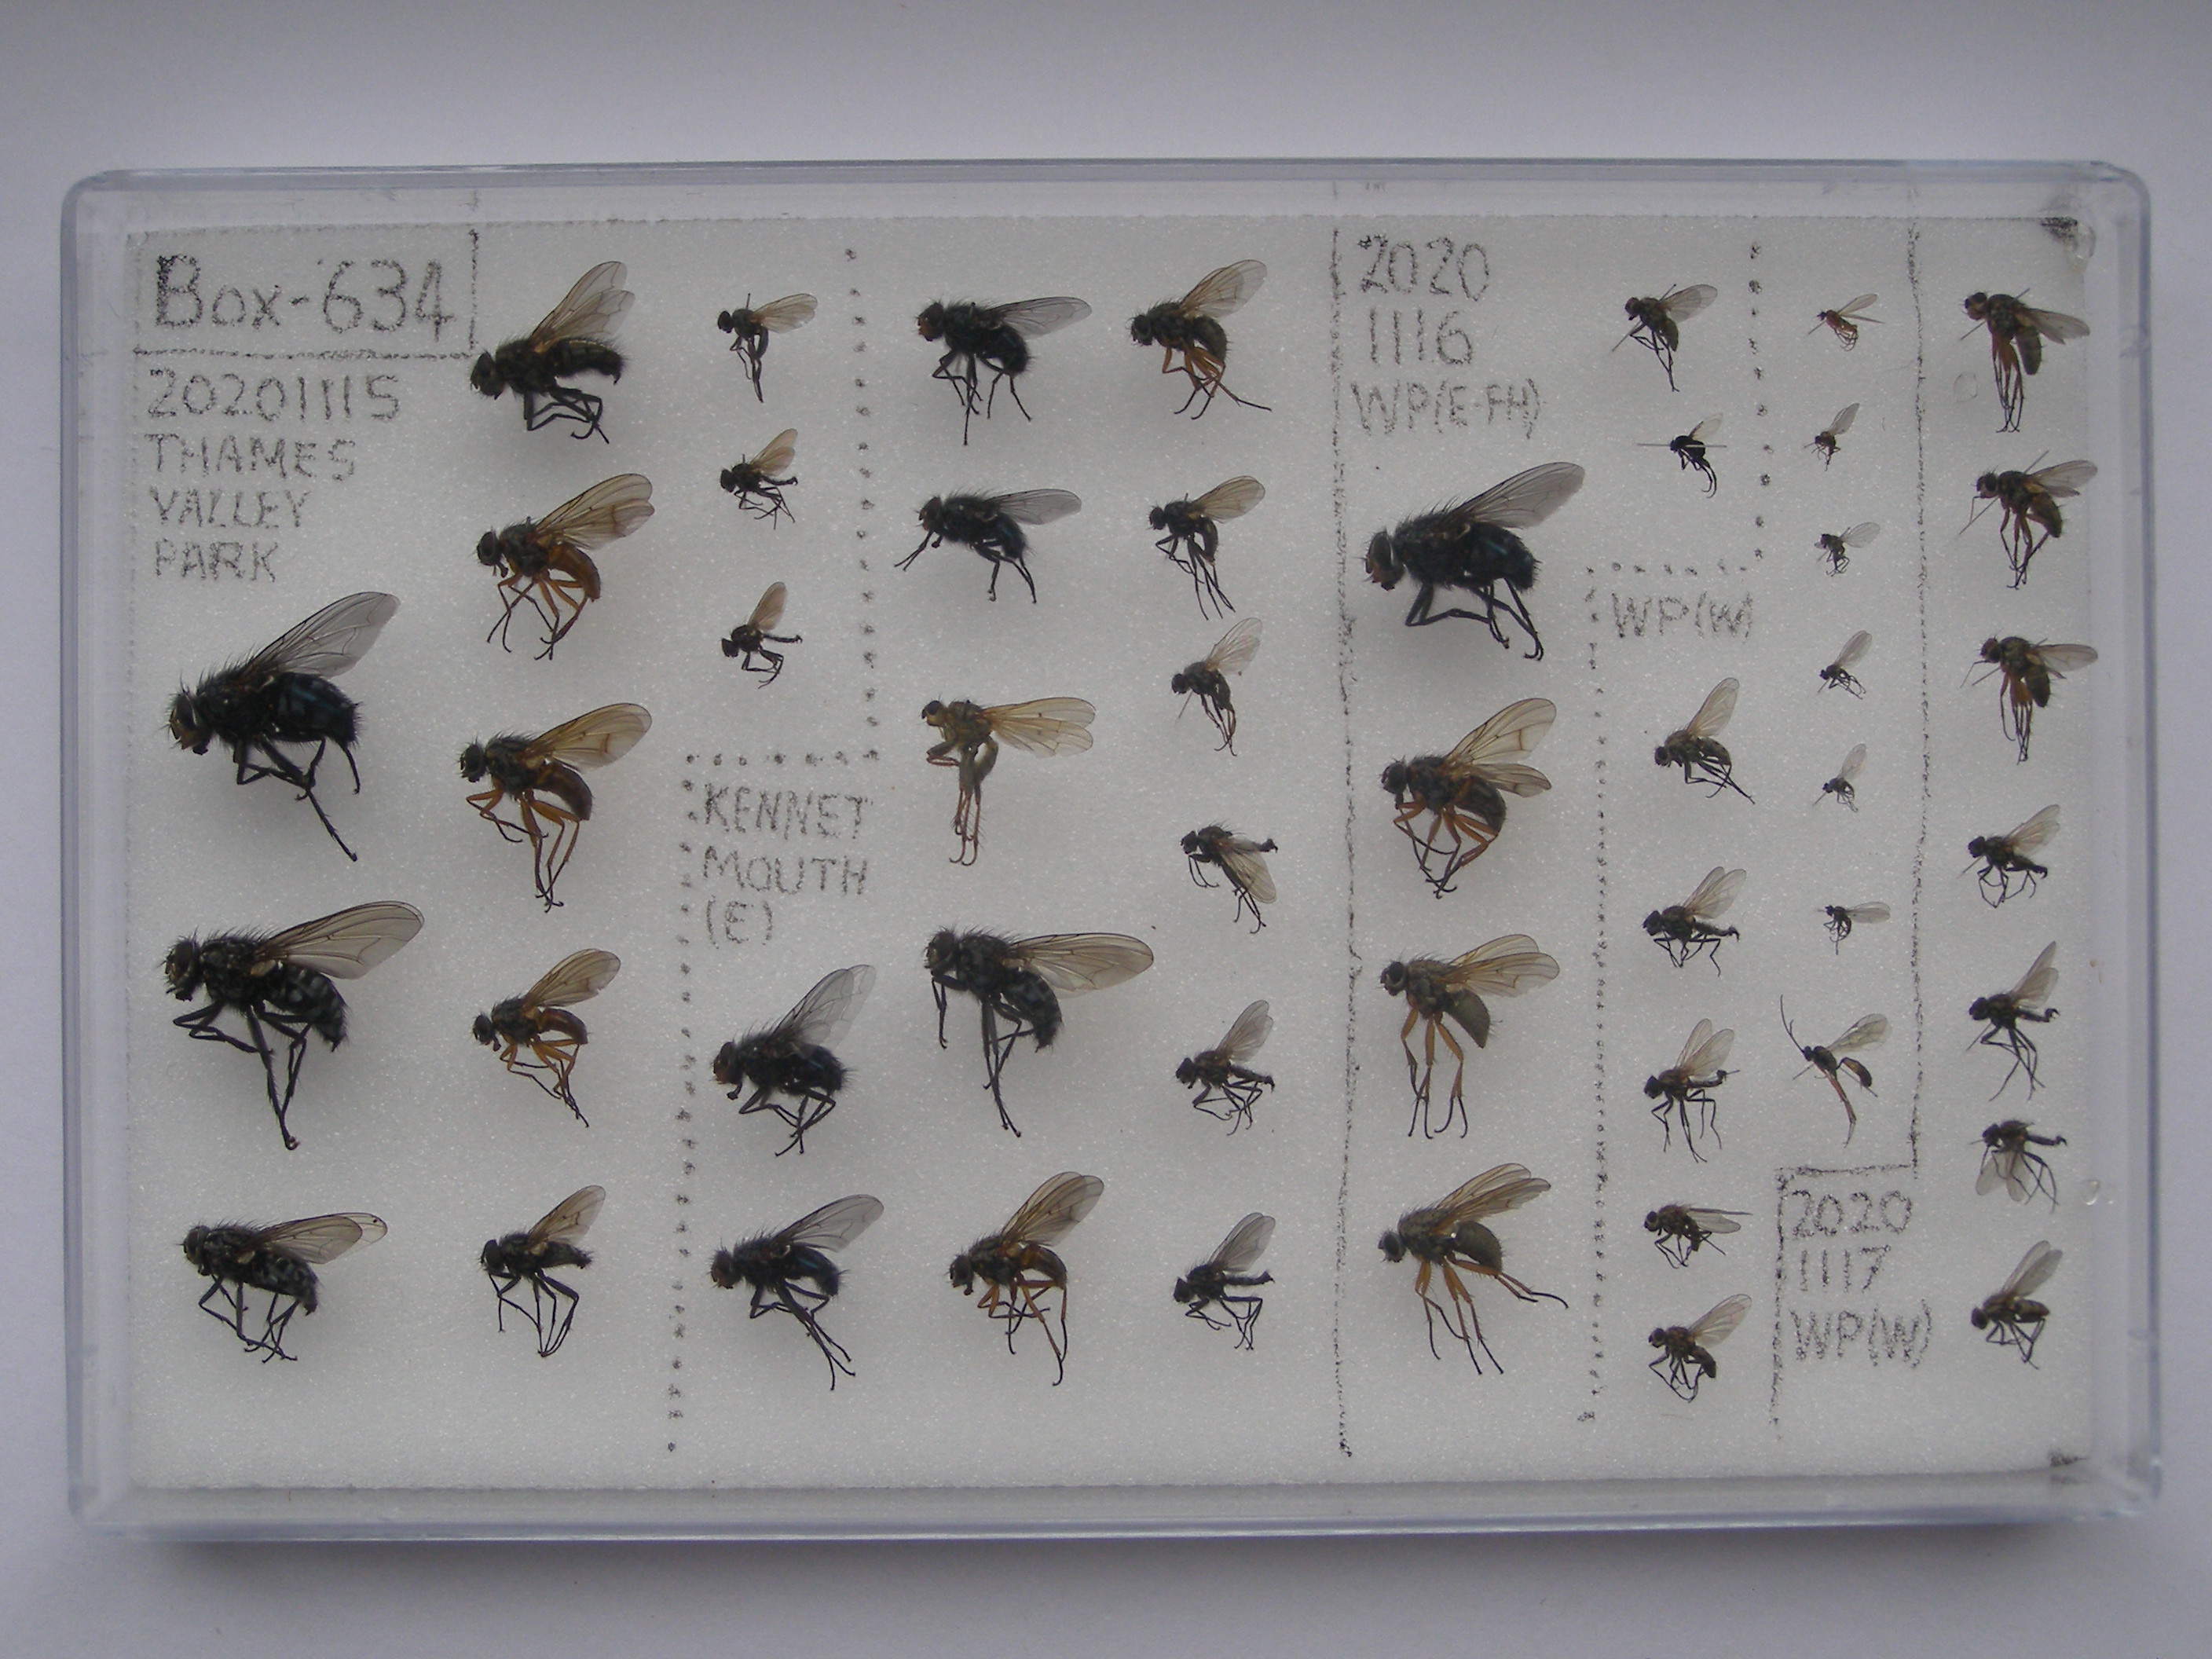 Box-634
20201115
THAMES
VALLEY
PARK
KENNET
MOUTH
(E)
2020
1116
WP(E-FH)
WP(W)
2020
1117
WP(W)